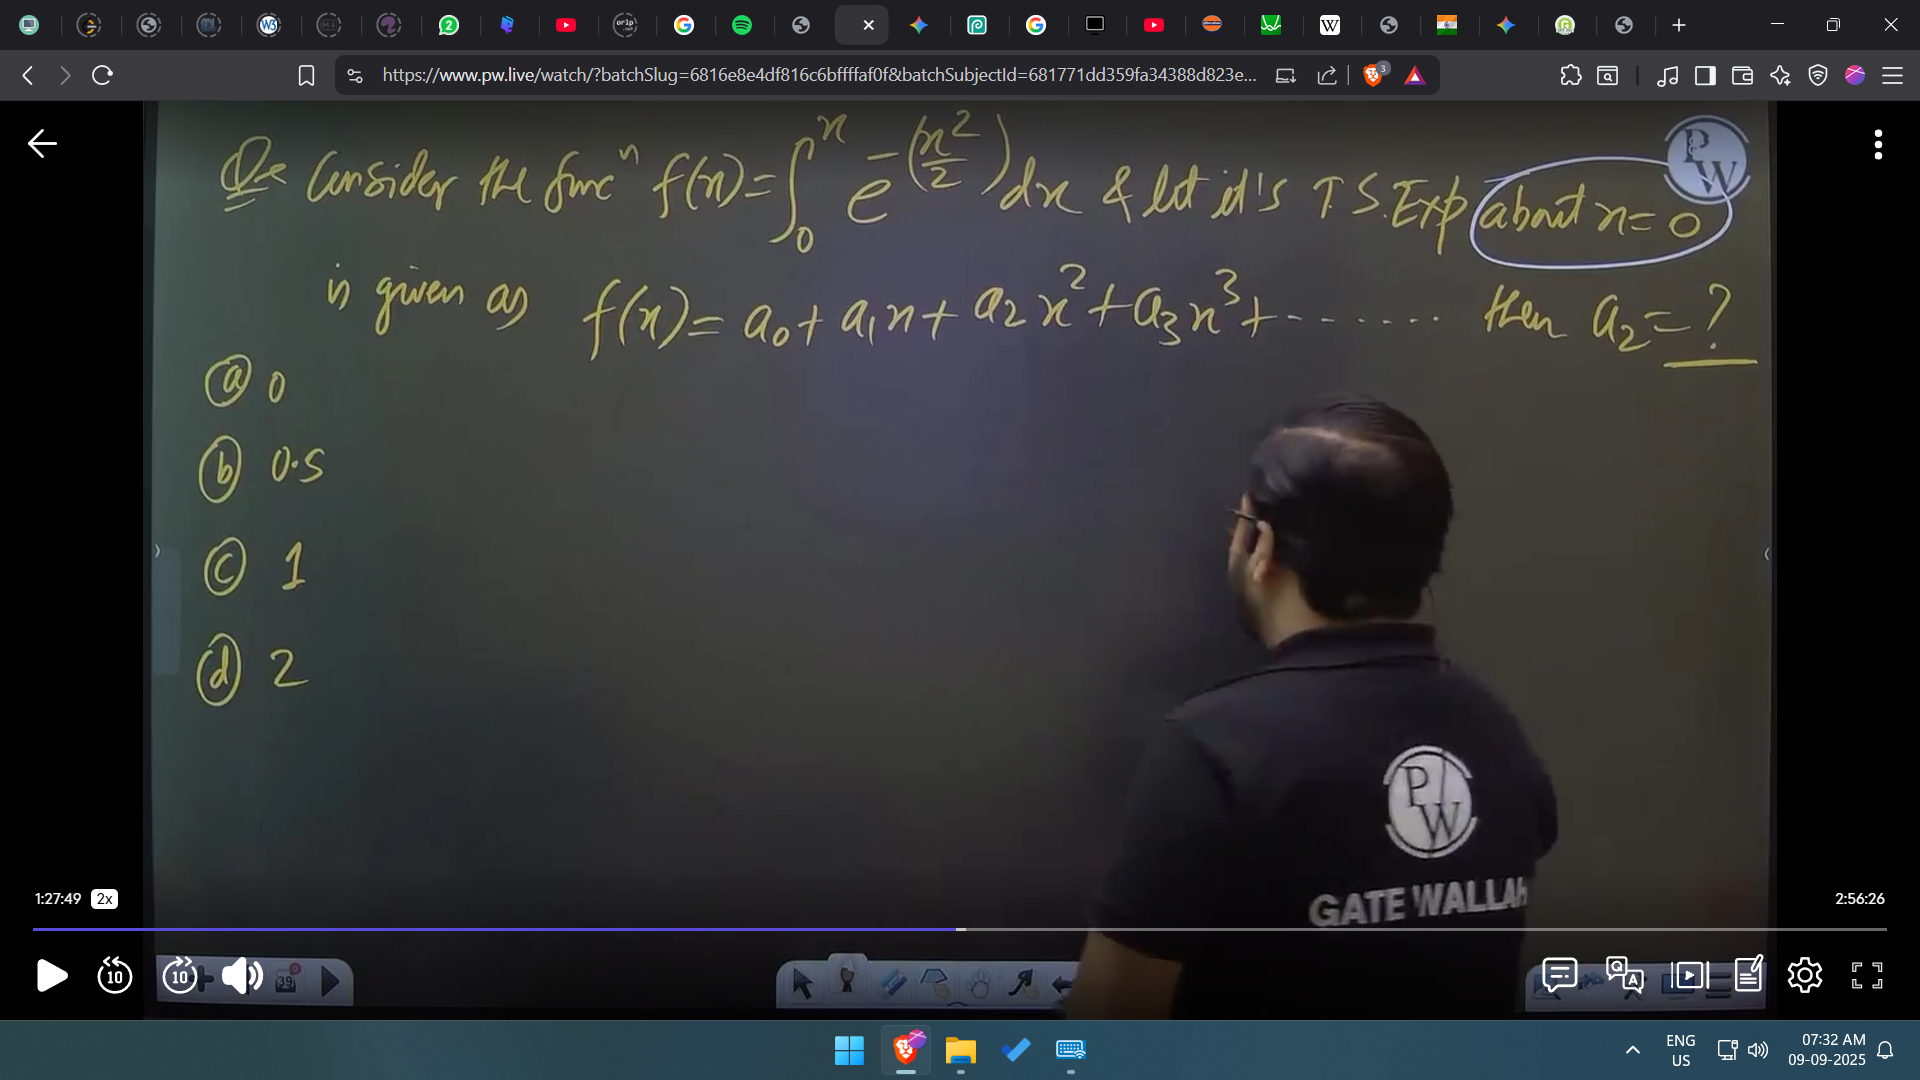 https://www.pw.live/watch/?batchSlug=6816e8e4df816c6bffffaf0f&batchSubjectId=681771dd359fa34388d823e...
3
Q= Consider the funcⁿ f(x)=∫₀ˣ e^-(x²/2) dx & let it's T.S.Exp about x=0
is given as f(x)= a₀+a₁x+a₂x²+a₃x³+....... then a₂=?
PW
ⓐ 0
ⓑ 0.5
ⓒ 1
ⓓ 2
PW
GATE WALLAH
1:27:49 2x
2:56:26
10 10
39
Q A
ENG
US
07:32 AM
09-09-2025